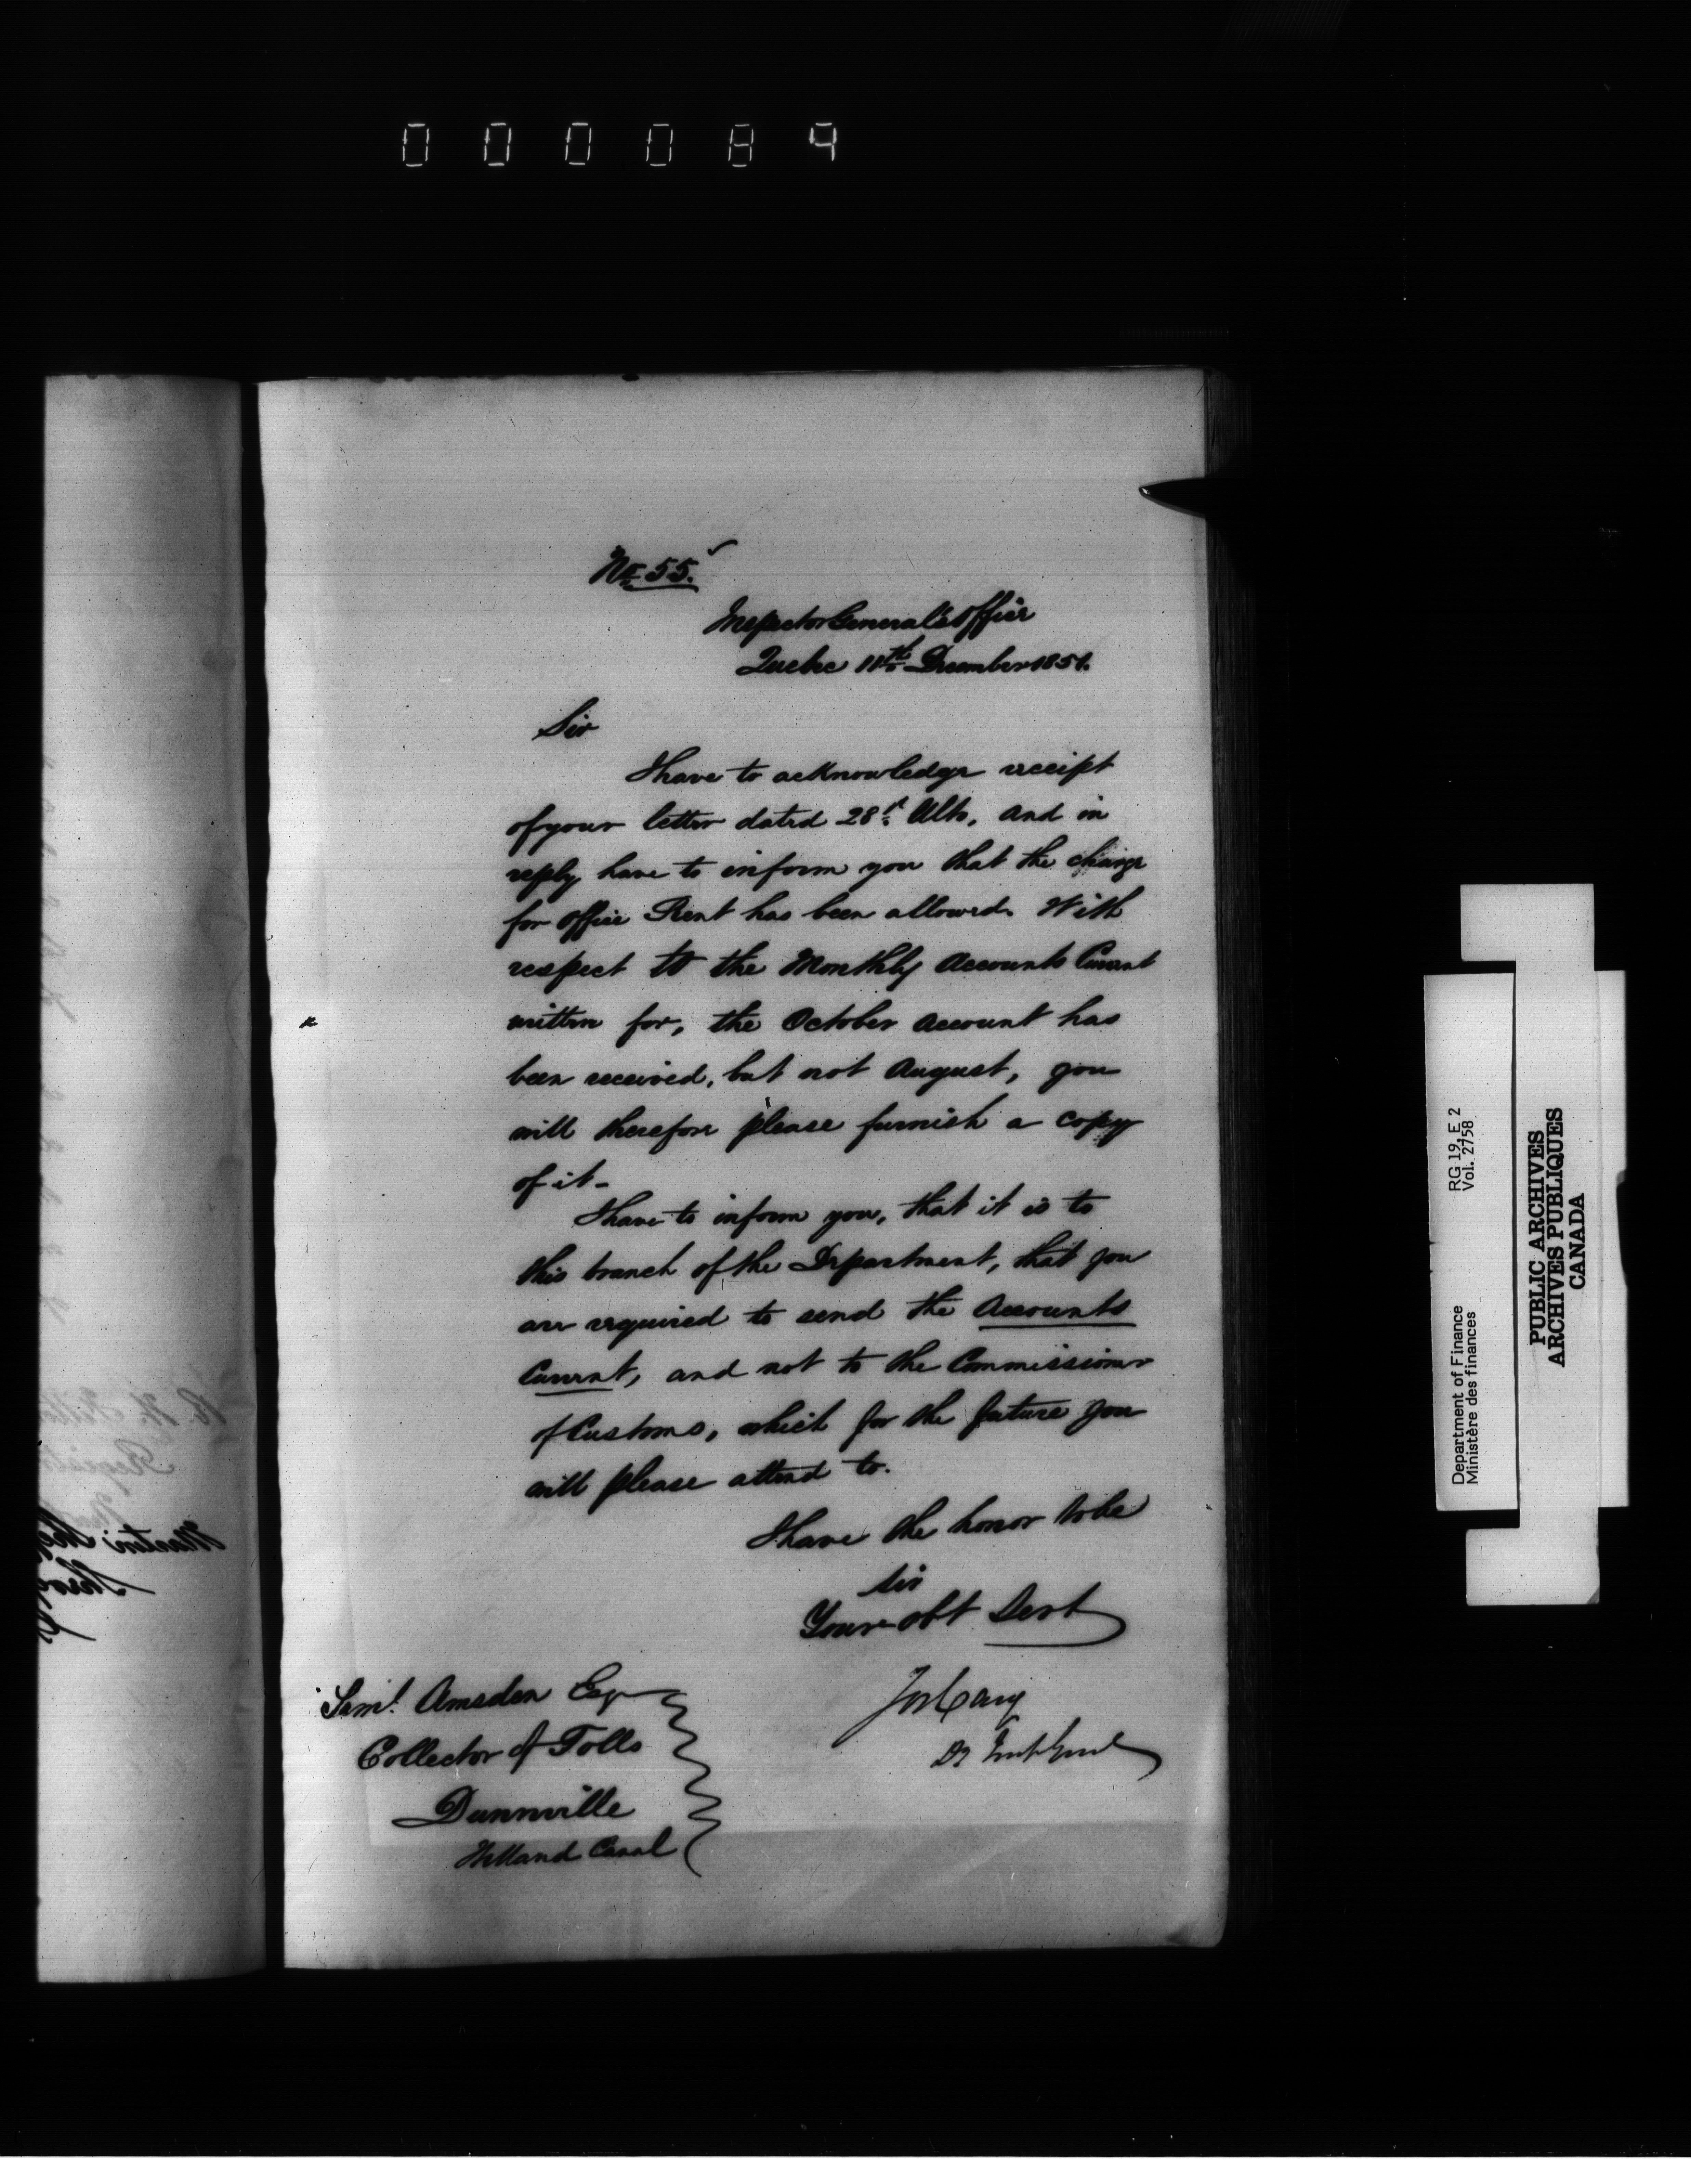 000089
No 55.
Inspector General's Office
Quebec 11th December 1851.
Sir
I have to acknowledge receipt
of your letter dated 28th Ulto, and in
reply have to inform you that the charge
for Office Rent has been allowed. With
respect to the Monthly Accounts Current
written for, the October Account has
been received, but not August, you
will therefore please furnish a copy
of it -
I have to inform you, that it is to
this branch of the Department, that you
are required to send the Accounts
Current, and not to the Commissioner
of Customs, which for the future you
will please attend to.
I have the honor to be
Sir
Your obt Servt
Jos Cary
Dy Inspr Genl
Saml. Amsden Esqr
Collector of Tolls
Dunnville
Welland Canal
Department of Finance RG 19, E 2
Ministère des finances Vol. 2758
PUBLIC ARCHIVES
ARCHIVES PUBLIQUES
CANADA